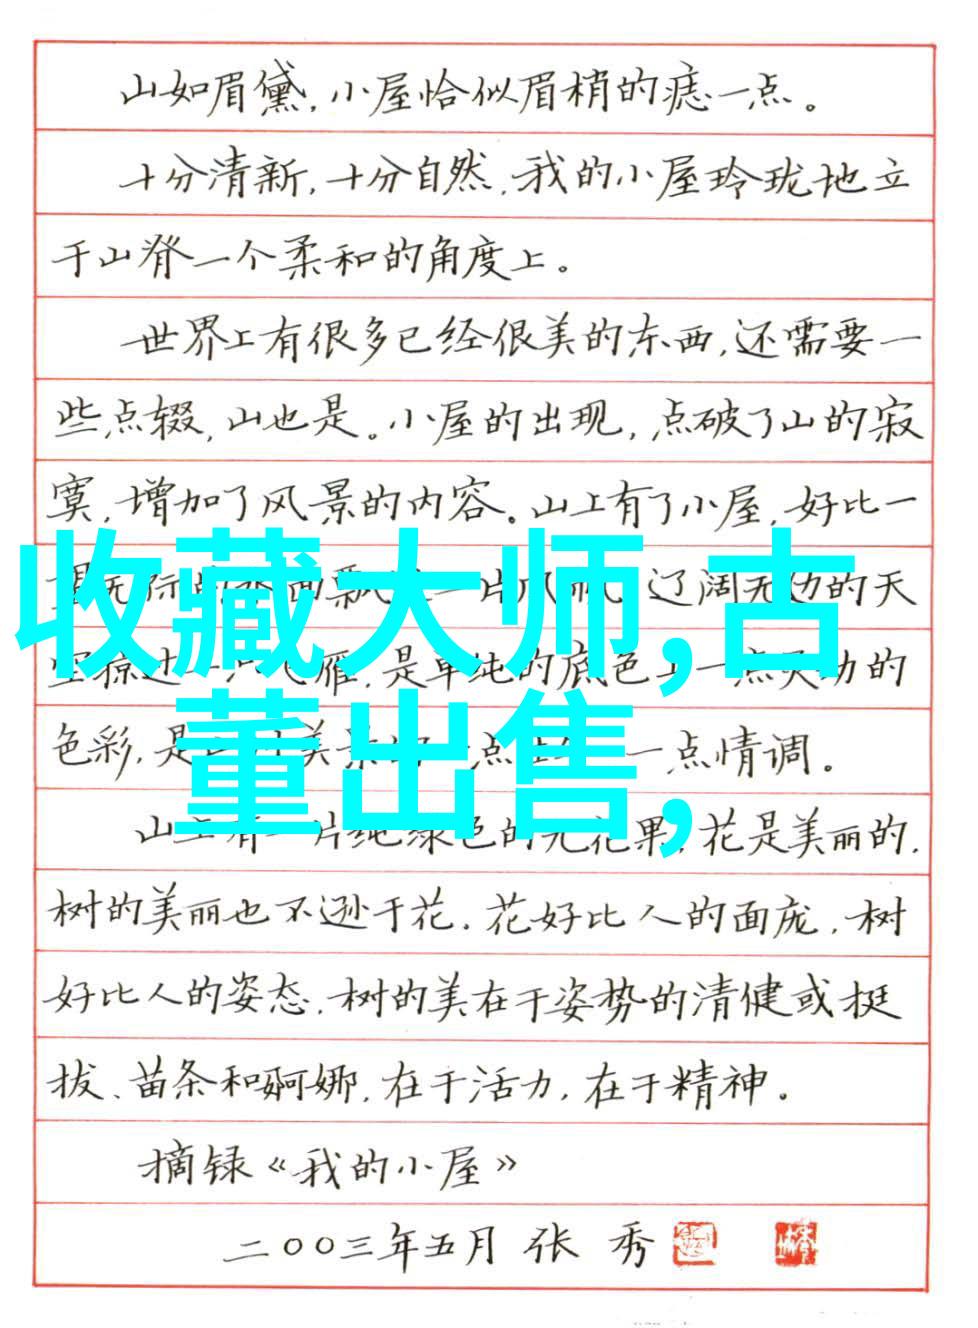 山如眉黛,小屋恰似眉梢的痣一点。
十分清新,十分自然,我的小屋玲珑地立
于山脊一个柔和的角度上。
世界上有很多已经很美的东西,还需要一
些点缀,山也是。小屋的出现,点破了山的寂
寞,增加了风景的内容。山上有了小屋,好比一
收藏大师,古
飘 一片风帆 辽阔无边的天
雁,是单纯的底色上一点灵动的
董出售,
色彩,是 美景 点 一点情调。
山上有一片纯绿色的无花果,花是美丽的,
树的美丽也不逊于花。花好比人的面庞,树
好比人的姿态,树的美在于姿势的清健或挺
拔、苗条和婀娜,在于活力,在于精神。
摘录《我的小屋》
二〇〇三年五月 张 秀